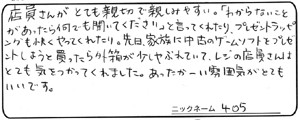 店員さんがとても親切で親しみやすい。「わからないこと
があったら何でも聞いてください」と言ってくれたり、プレゼントラッピ
ングも快くやってくれたり。先日、家族に中古のゲームソフトをプレゼ
ントしようと買ったら外箱が少しやぶれていて、レジの店員さんは
とても気をつかってくれました。あったかーい雰囲気がとても
いいです。
ニックネーム 405